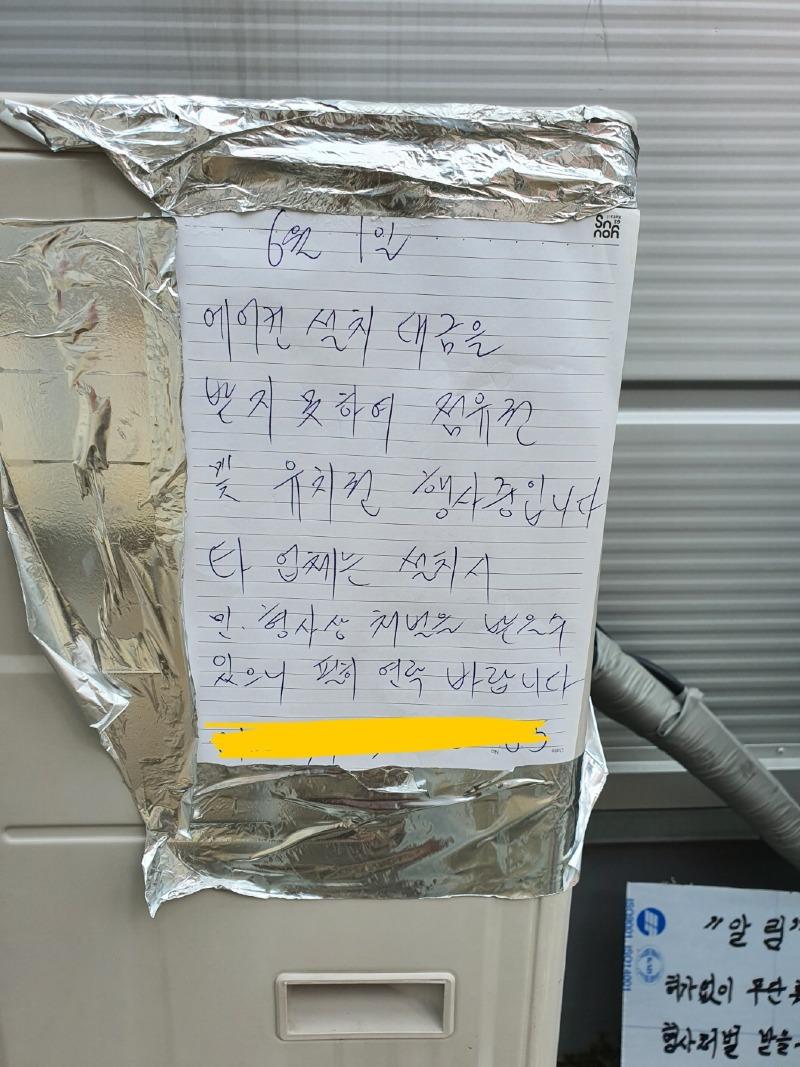 6월 1일
에어컨 설치 대금을
받지 못하여 점유권
및 유치권 행사중입니다
타 업체는 설치시
민.형사상 처벌을 받을수
있으니 필히 연락 바랍니다
Date No
"알림"
허가없이 무단
형사처벌 받을
ISO9001 ISO14001